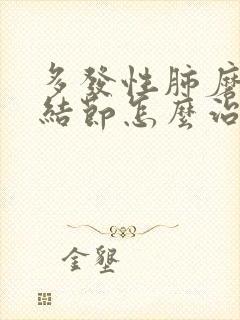 多發性肺磨
結節怎麼治
金墾